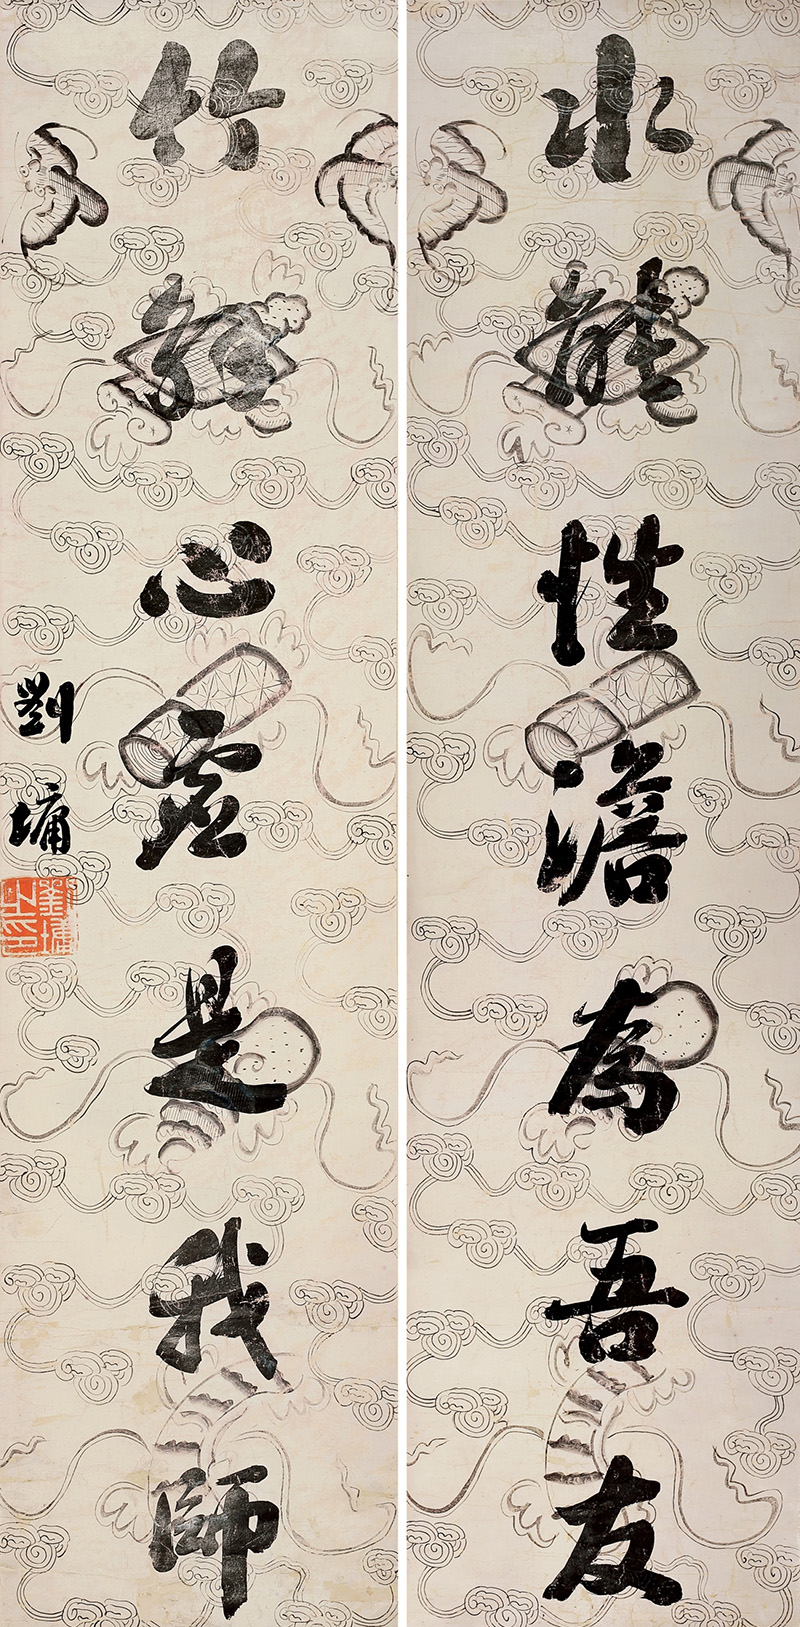 水能性澹為吾友
竹解心虛是我師
劉墉
劉墉之印